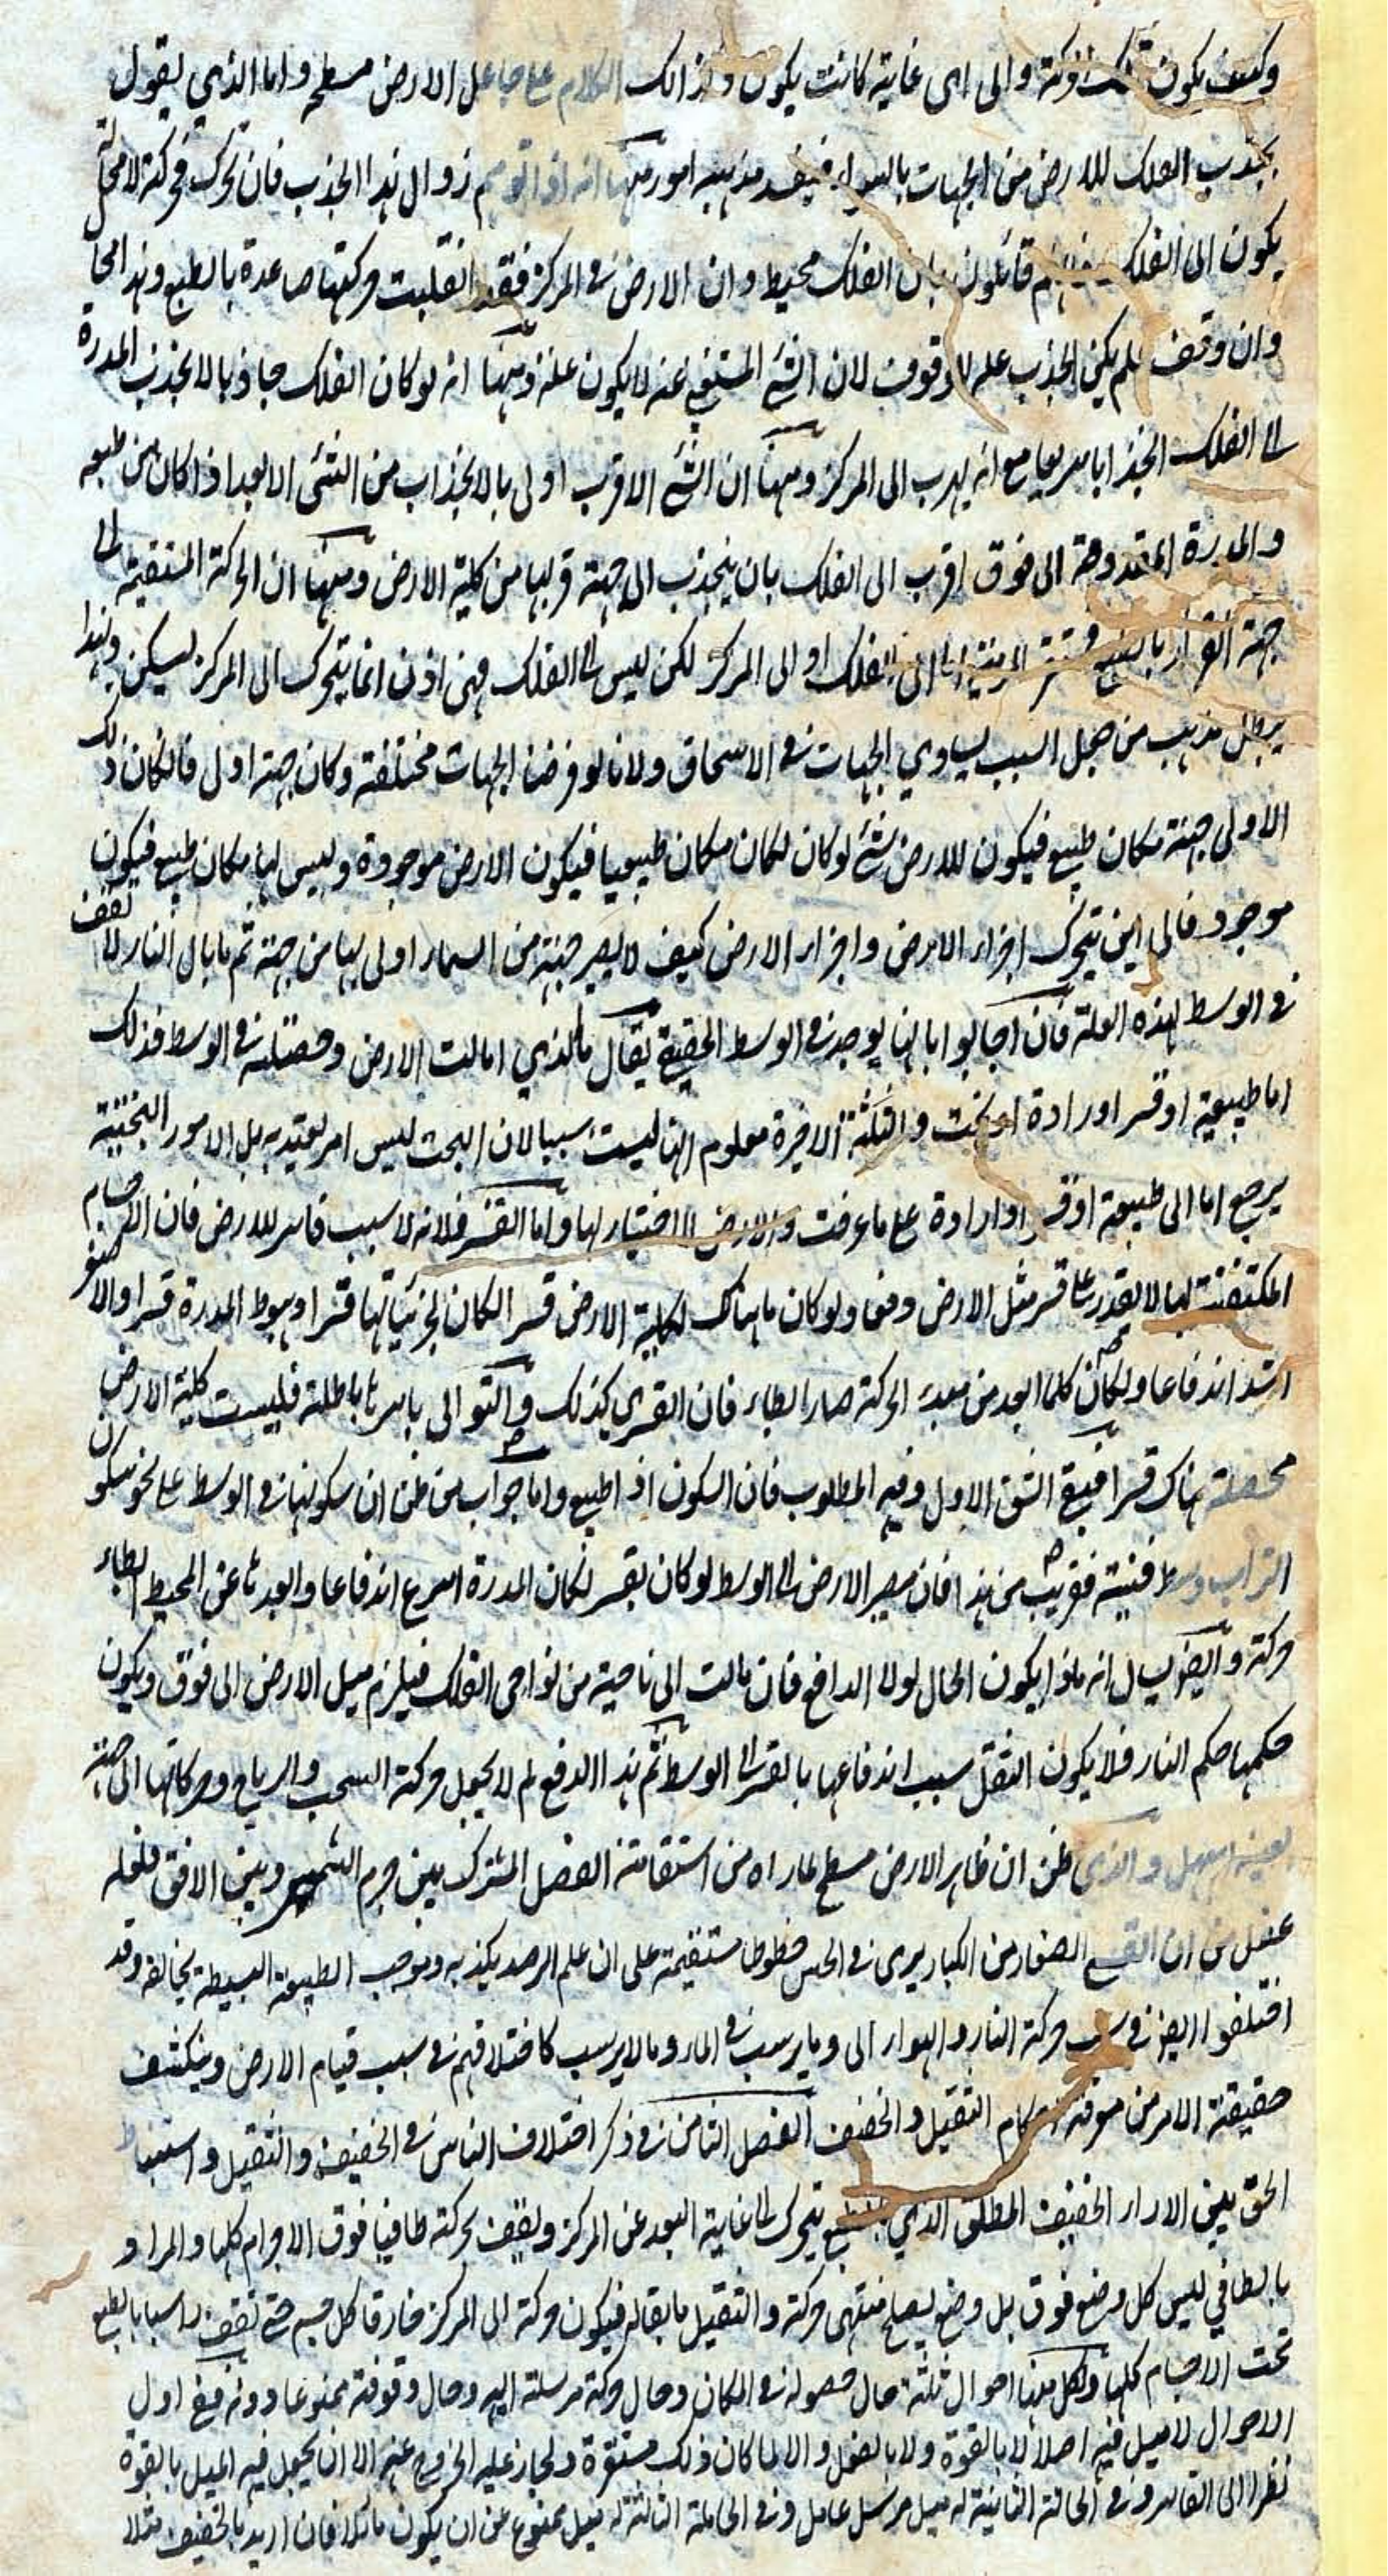 وكيف يكون تلك الحركة والى اى غاية كانت يكون وكذالك الكلام على جاعل الارض مسطحه واما الذي يقول
بجذب الفلك للارض من الجهات بالسواء فيفسد مذهبه امور منها انه اذا توهم زوال هذا الجذب فان تحرك فحركته لامحالة
يكون الى الفلك فانهم قائلون بان الفلك محيط وان الارض فى المركز فقد انقلبت حركتها صاعدة بالطبع وهذا محال
وان وقف فلم يكن الجذب علة للوقوف لان الشئ المستغنى عنه لا يكون علة ومنها انه لو كان الفلك جاذبا لانجذبت المدرة
الى الفلك انجذابا سريعا مع انه يهرب الى المركز ومنها ان الشئ الاقرب اولى بالانجذاب من الشئ الابعد اذا كان من طبعه
والمدرة المقذوفة الى فوق اقرب الى الفلك بان ينجذب الى جهة قربها من كلية الارض ومنها ان الحركة المستقيمة الى
جهة القرار بالطبع الى الفلك او الى المركز لكن ليس الى الفلك فهى اذن انما يتحرك الى المركز ليسكن وبهذا
يبطل مذهب من جعل السبب تساوي الجهات فى الاستحقاق ولانا لو فرضنا الجهات مختلفة وكان جهة اولى فالكان ذلك
الاولى جهة مكان طبيعى فيكون للارض شئ لو كان لكان مكان طبيعيا فيكون الارض موجودة وليس لها مكان طبيعى فيكون
موجود فالى اين يتحرك اجزاء الارض واجزاء الارض كيف لا يصير جهة من السماء اولى بها من جهة ثم ما بال النار لا تقف
فى الوسط لهذه العلة فان اجابوا بانها يوجد فى الوسط الحقيقى يقال ما الذي امالت الارض وحصلته فى الوسط فذلك
اما طبيعية او قسر او ارادة او بخت والثلثة الاخيرة معلوم انها ليست سببا لان البحت ليس امر يعتد به بل الامور البختية
يرجع اما الى طبيعة او قسر او ارادة على ما عرفت والارض لا اختيار لها واما القسر فلانه لا سبب قاسر للارض فان الاجسام
المكتنفة لها لا يقدر على قسر مثل الارض وفى ولو كان ما هناك لكلية الارض قسر الكان لجزئياتها قسرا وهبوط المدرة قسرا والاصغر
اشد اندفاعا ولكان كلما ابعد من مبدء الحركة صار ابطاء فان القسرى كذلك والتوالى باسرها باطلة فليست كلية الارض
محصلة هناك قسرا فبقى الشق الاول وفيه المطلوب فان السكون اذ اطبيعى واما جواب من ظن ان سكونها فى الوسط على نحو سكون
التراب وسط قنينة فقريب من هذا فان مصير الارض الى الوسط لو كان بقسر لكان المدرة اسرع اندفاعا وابعدها عن المحيط ابطاء
حركة وايضا يسال انه ماذا يكون الحال لولا الدافع فان مالت الى ناحية من نواحى الفلك فيلزم ميل الارض الى فوق ويكون
حكمها حكم النار فلا يكون الثقل سبب اندفاعها بالقسر الى الوسط ثم هذا الدفع لم لا يجعل حركة السحب والرياح وحركاتها الى جهة
بعينها اسهل والذى ظن ان ظاهر الارض مسطح لما راه من استقامة الفصل المشترك بين جرم الشمس وبين الافق فلعله
غفل عن ان القسى الصغار من الكبار يرى فى الحس خطوطا مستقيمة على ان علم الرصد يكذبه وموجب الطبيعة البسيطة يخالفه وقد
اختلفوا ايضا فى سبب حركة النار والهواء الى وما يرسب فى الماء وما لا يرسب كاختلافهم فى سبب قيام الارض وينكشف
حقيقة الامر من معرفة احكام الثقيل والخفيف الفصل الثامن فى ذكر اختلاف الناس فى الخفيف والثقيل واستنباط
الحق بين الاراء الخفيف المطلق الذي بالطبع يتحرك الى غاية البعد عن المركز ويقف بحركته طافيا فوق الاجرام كلها والمراد
بالطافي ليس كل وضع فوق بل وضع يصلح منتهى حركة والثقيل ما يقابله فيكون حركة الى المركز خارقا كل جسم حتى تقف راسبا بالطبع
تحت الاجسام كلها ولكل منها احوال ثلثة حال حصوله فى المكان وحال حركة مرسلة اليه وحال وقوفه ممنوعا دونه ففى اول
الاحوال لا ميل فيه اصلا لا بالقوة ولا بالفعل والا لما كان ذلك مستقره ولجاز عليه الخروج عنه الا ان يجعل فيه الميل بالقوة
نظرا الى القاسر وفى الحالة الثانية له ميل مرسل عامل وفى الحالة الثالثة له ميل ممنوع عن ان يكون مائلا فان اريد بالخفيف مثلا